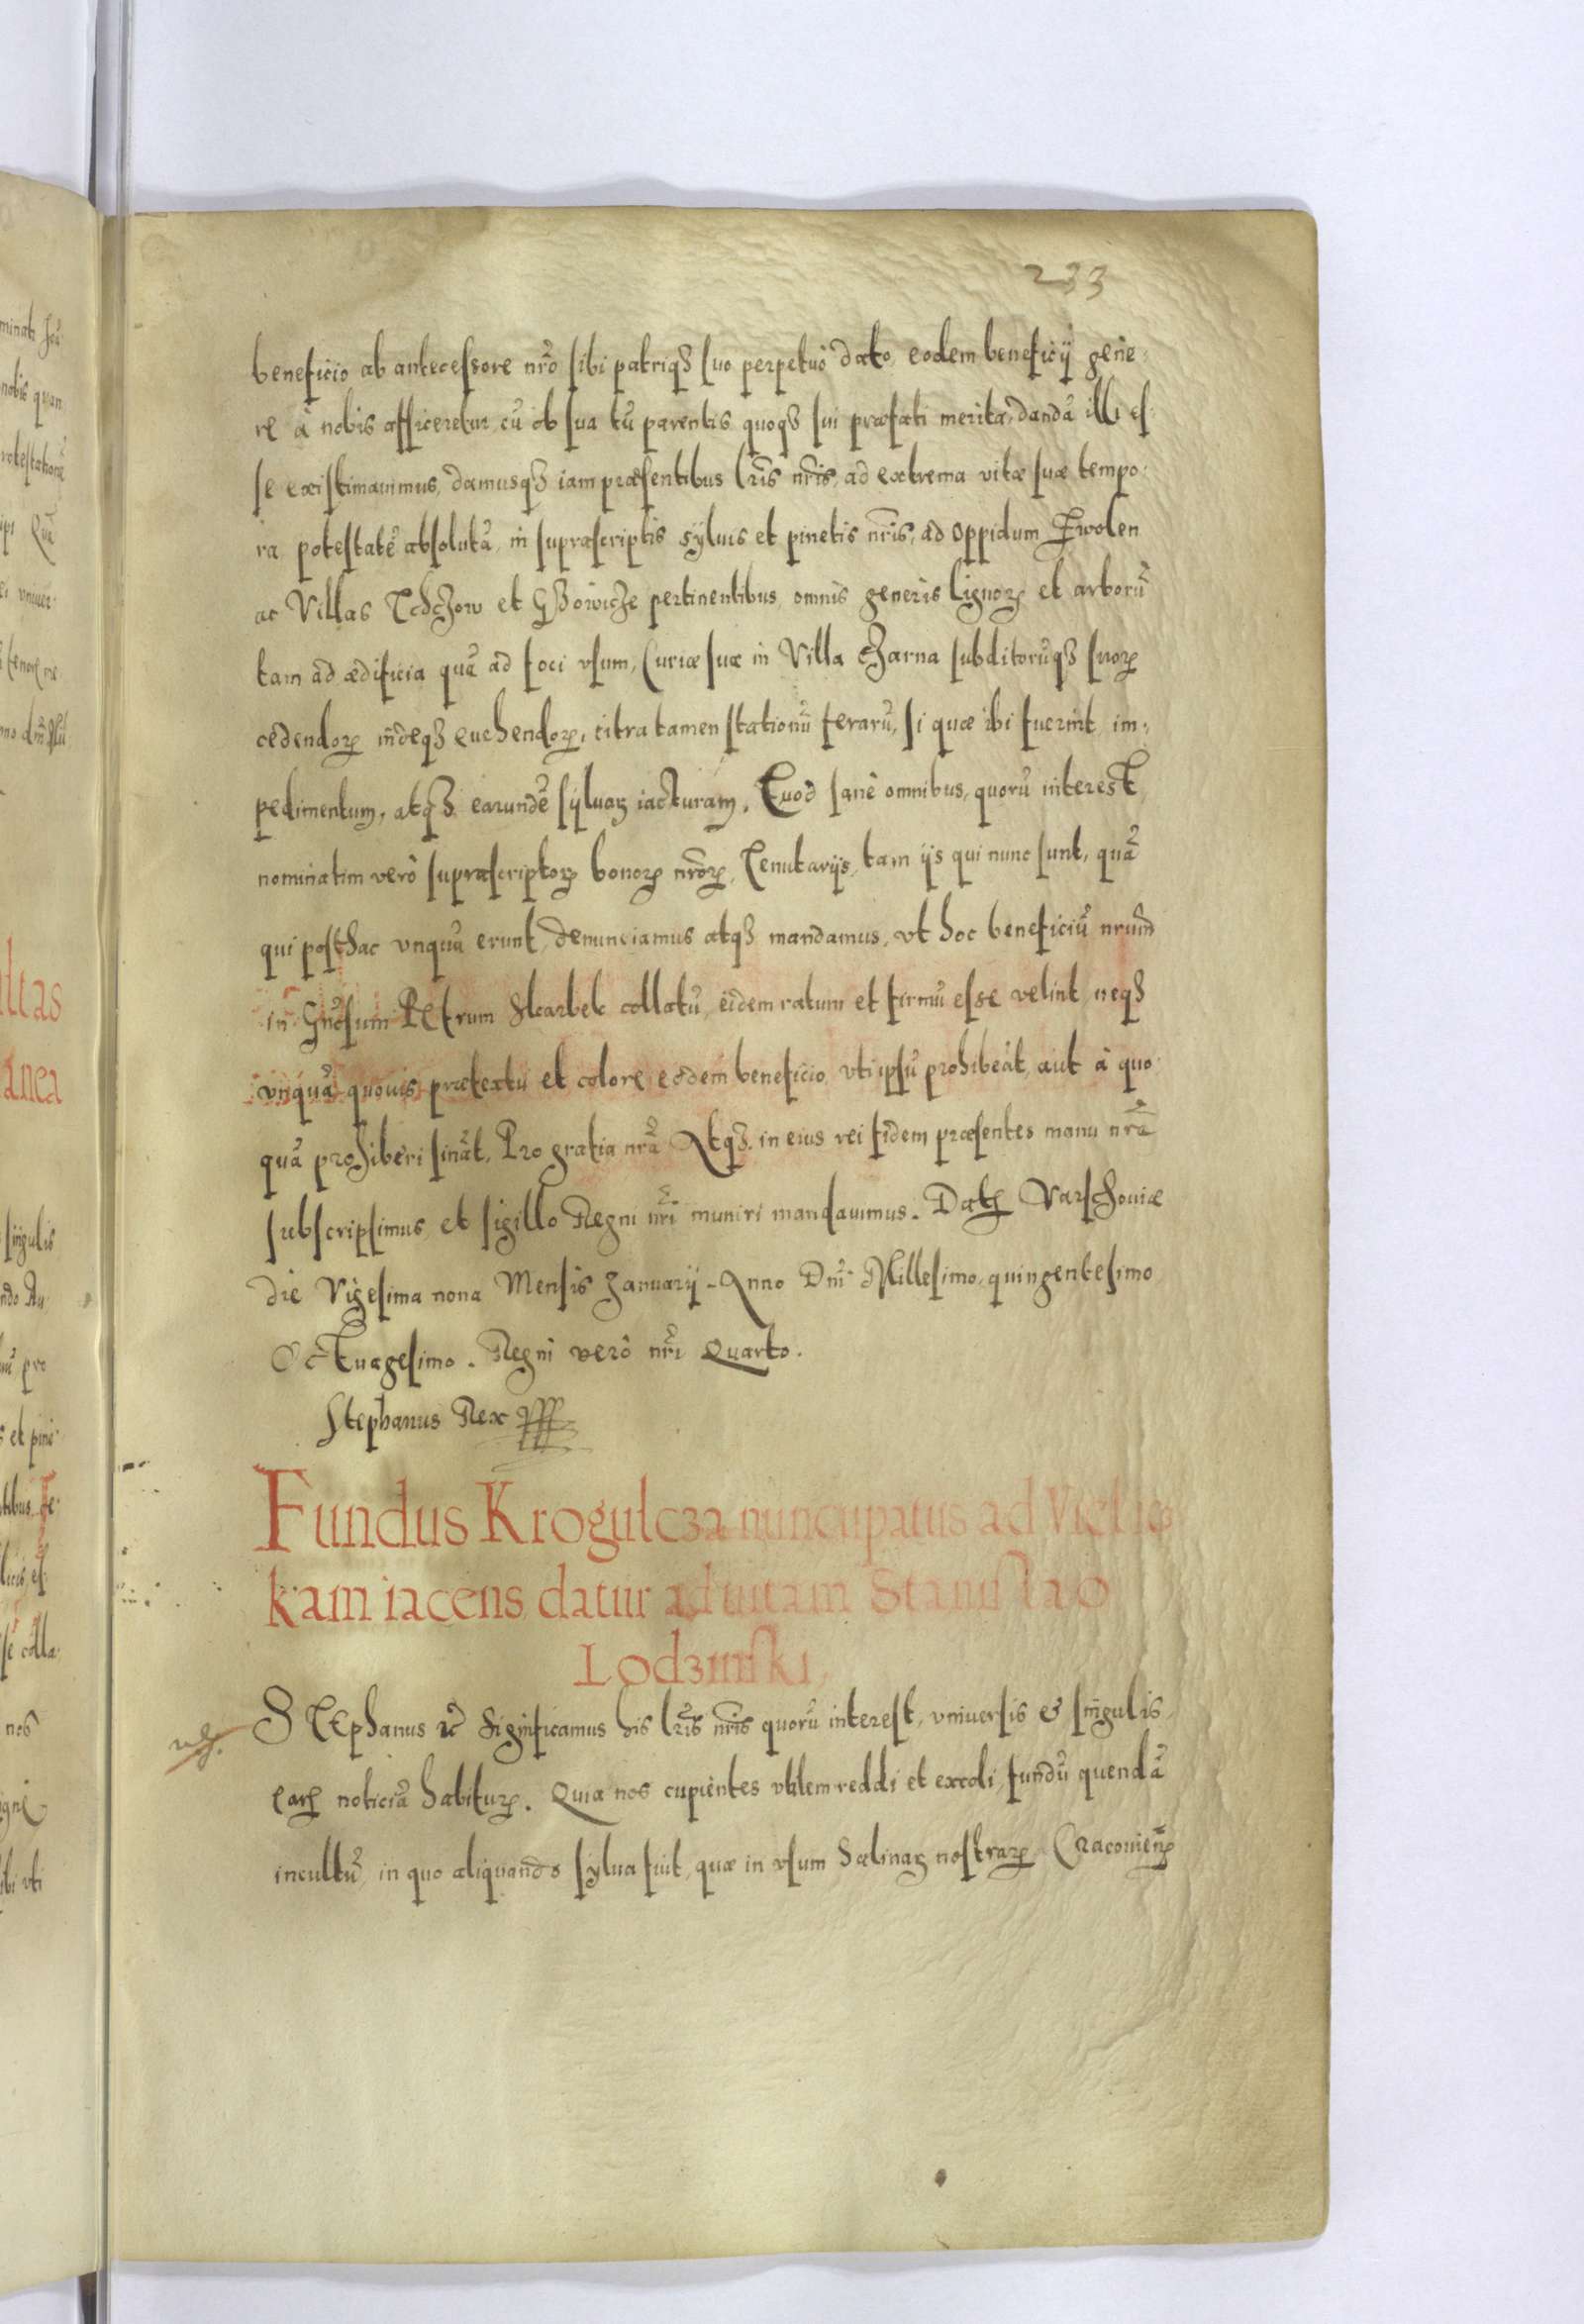 233
beneficio ab antecessore nr̃o sibi patriqȝ suo perpetuò dato, eodem beneficij gene-
re à nobis afficeretur, cũ ob sua tũ parentis quoqȝ sui præfati merita, dandã illi es-
se existimauimus, damusqȝ iam præsentibus lr̃is nr̃is, ad extrema vitæ suæ tempo-
ra potestatẽ absolutã, in suprascriptis syluis et pinetis nr̃is, ad oppidum Zwolen
ac Villas Tchczow et Gzowicze pertinentibus, omnis generis lignoꝝ et arborũ
tam ad ædificia quã ad foci vsum, Curiæ suæ in Villa Czarna subditorũqȝ suoꝝ
cedendoꝝ indeqȝ euehendoꝝ, citra tamen stationũ ferarũ, si quæ ibi fuerint im-
pedimentum, atqȝ earundẽ syluaꝝ iacturam. Quod sanè omnibus, quorũ interest,
nominatim verò suprascriptoꝝ bonoꝝ nr̃oꝝ, Tenutarijs, tam ijs qui nunc sunt, quã
qui posthac vnquã erunt, denunciamus atqȝ mandamus, vt hoc beneficiũ nr̃um
in Gñosum Petrum Skarbek collatũ, eidem ratum et firmũ esse velint, neqȝ
vnquã quouis prætextu et colore eodem beneficio vti ipsũ prohibeãt, aut à quo-
quã prohiberi sinãt, Pro gratia nr̃a. Atqȝ in eius rei fidem præsentes manu nr̃a
subscripsimus, et sigillo Regni nr̃i muniri mandauimus. Datꝝ Varschouiæ
die Vigesima nona Mensis Januarij. Anno Dnĩ Millesimo, quingentesimo,
Octuagesimo. Regni verò nr̃i Quarto.
Stephanus Rex
Fundus Krogulcza nuncupatus ad Vielicz
kam iacens datur ad uitam Stanislao
Lodzinski,
STEphanus etc̃ Significamus his lr̃is nr̃is quorũ interest, vniuersis & singulis,
earꝝ noticiã habituꝝ. Quia nos cupientes vtilem reddi et excoli, fundũ quendã
incultũ, in quo aliquando sylua fuit, quæ in vsum Salinaꝝ nostraꝝ Cracouienꝝ